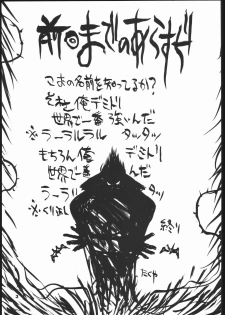 前回までのあらすじ
この名前を知ってるか?
それは俺デミトリ
世界で一番強いんだ
※ラーラルラル タッタッ
もちろん俺 デミトリ
世界で一番 んだ
ラーラ タッ
※くり返し
終り
たくや